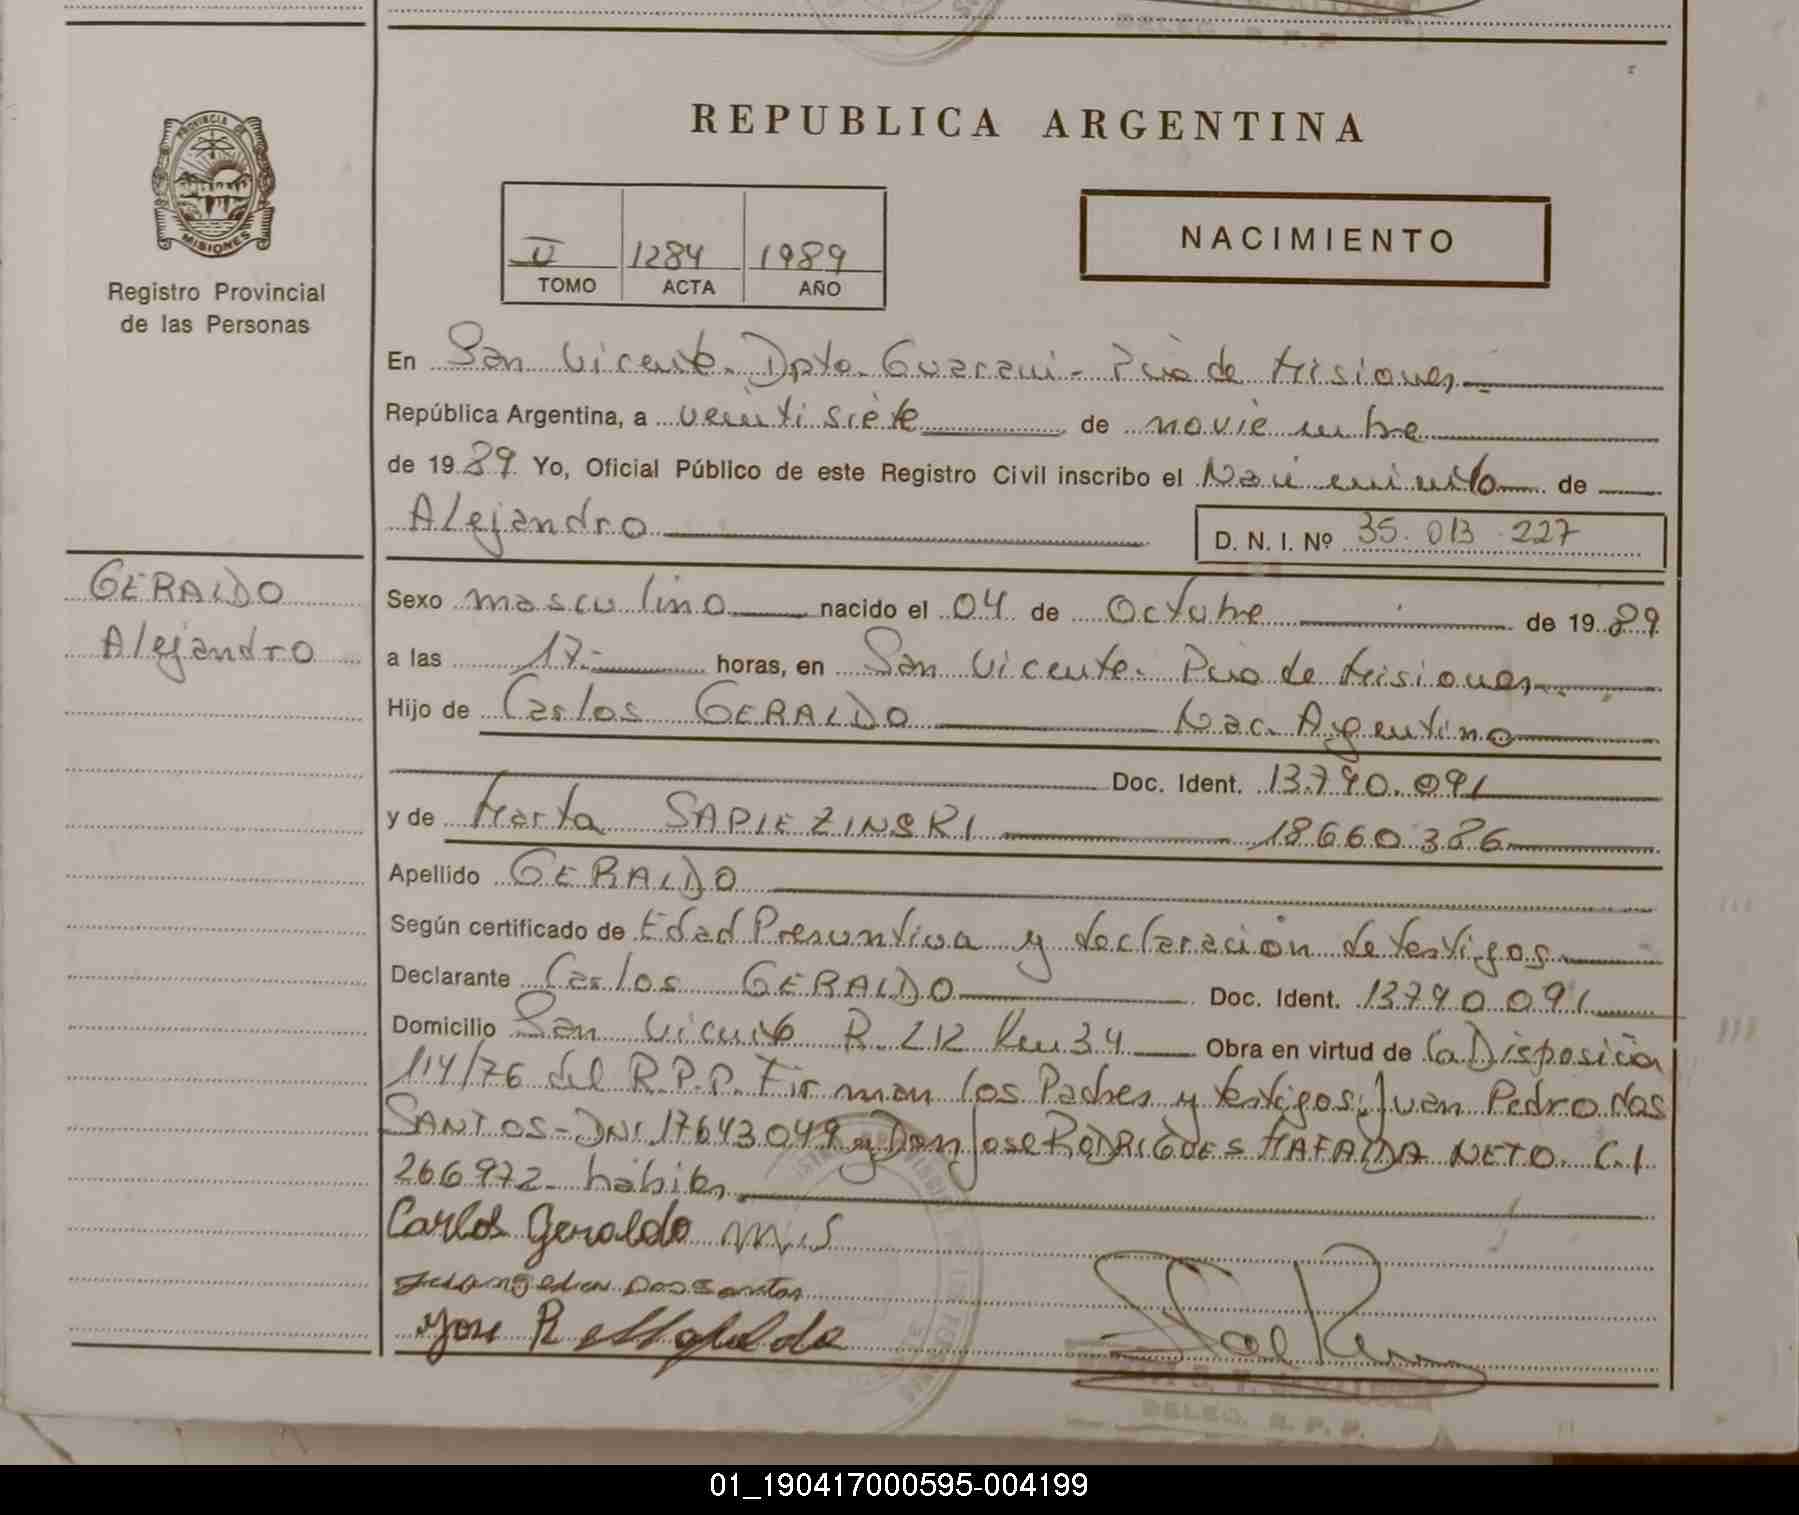 REPUBLICA ARGENTINA
PROVINCIA DE
MISIONES
Registro Provincial
de las Personas
II 1284 1989
TOMO ACTA AÑO
NACIMIENTO
En San Vicente. Dpto. Guarani - Pcia de Misiones
República Argentina, a veintisiete de noviembre
de 1989 Yo, Oficial Público de este Registro Civil inscribo el Nacimiento de
Alejandro
D. N. I. Nº 35.013.227
GERALDO
Alejandro
Sexo masculino nacido el 04 de Octubre de 1989
a las 17- horas, en San Vicente. Pcia de Misiones
Hijo de Carlos GERALDO Nac. Argentino
Doc. Ident. 13.790.091
y de Marta SAPIEZINSKI 18660386
Apellido GERALDO
Según certificado de Edad Presuntiva y declaración de testigos
Declarante Carlos GERALDO Doc. Ident. 13790091
Domicilio San Vicente R. 212 Km 34 Obra en virtud de la Disposición
114/76 del R.P.P. Firman los Padres y testigos: Juan Pedro dos
SANTOS - DNI 17643049 y Don Jose RODRIGUES MAFALDA NETO. C.I.
266972- hábiles
Carlos Geraldo M.S
dos santos
Jose R
DELEG. R. P. P.
01_190417000595-004199